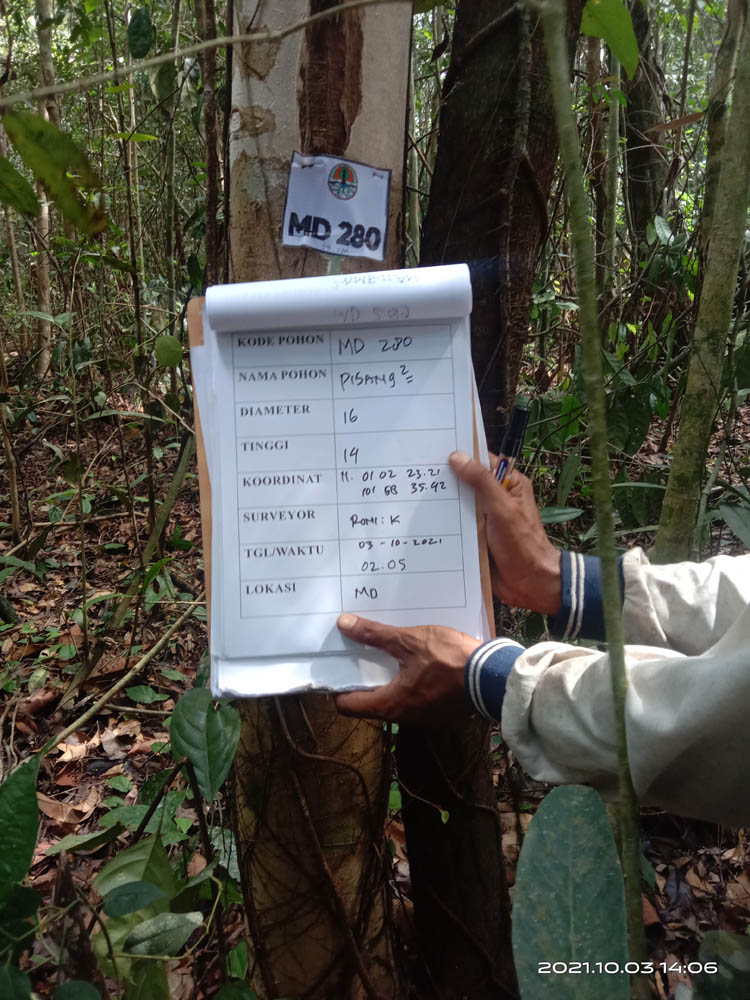 MD 280
MD 280
KODE POHON MD 280
NAMA POHON PISANG2
DIAMETER 16
TINGGI 14
KOORDINAT 01 02 23.21
101 58 35.92
SURVEYOR ROMI: K
TGL/WAKTU 03-10-2021
02:05
LOKASI MD
2021.10.03 14:06